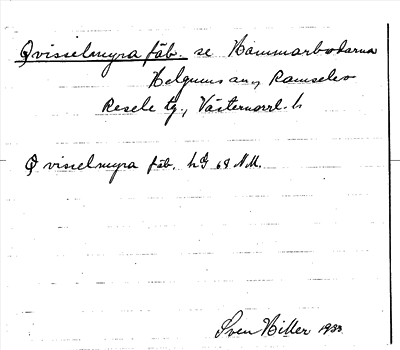 Qvisselmyra fäb. se Hammarbodarna
Helgums any Ramsele s
Resele tg., Västernorrl. l.
Qvisselmyra fäb. hG 68 NM.
Sven Hiller 1933